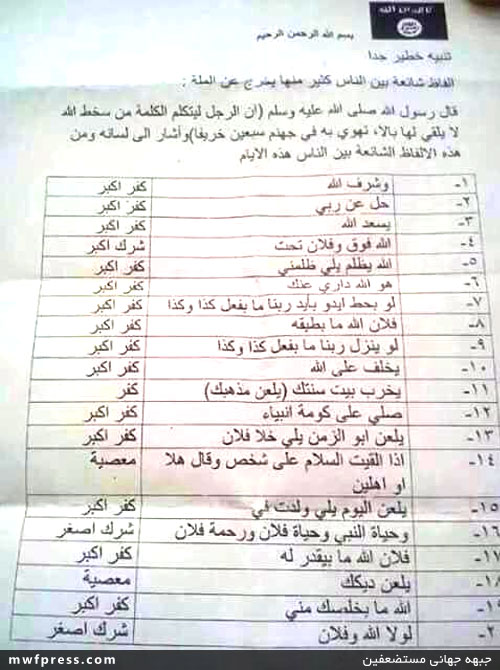 لا اله الا الله
بسم الله الرحمن الرحيم
تنبيه خطير جدا
الفاظ شائعة بين الناس كثير منها يخرج عن الملة :
قال رسول الله صلى الله عليه وسلم (ان الرجل ليتكلم الكلمة من سخط الله
لا يلقي لها بالا، تهوي به في جهنم سبعين خريفا)وأشار الى لسانه ومن
هذه الالفاظ الشائعة بين الناس هذه الايام
١- وشرف الله كفر اكبر
٢- حل عن ربي كفر اكبر
٣- يسعد الله كفر اكبر
٤- الله فوق وفلان تحت شرك اكبر
٥- الله يظلم يلي ظلمني كفر اكبر
٦- هو الله داري عنك كفر اكبر
٧- لو بحط ايدو بأيد ربنا ما بفعل كذا وكذا كفر اكبر
٨- فلان الله ما بطيقه كفر اكبر
٩- لو ينزل ربنا ما بفعل كذا وكذا كفر اكبر
١٠- يخلف على الله كفر اكبر
١١- يخرب بيت سنتك (يلعن مذهبك) كفر
١٢- صلي على كومة انبياء كفر اكبر
١٣- يلعن ابو الزمن يلي خلا فلان كفر اكبر
١٤- اذا القيت السلام على شخص وقال هلا معصية
او اهلين
١٥- يلعن اليوم يلي ولدت في كفر اكبر
١٦- وحياة النبي وحياة فلان ورحمة فلان شرك اصغر
١٧- فلان الله ما بيقدر له كفر اكبر
١٨- يلعن ديكك معصية
١- الله ما بخلصك مني كفر اكبر
٢- لولا الله وفلان شرك اصغر
mwfpress.com جبهه جهانی مستضعفین